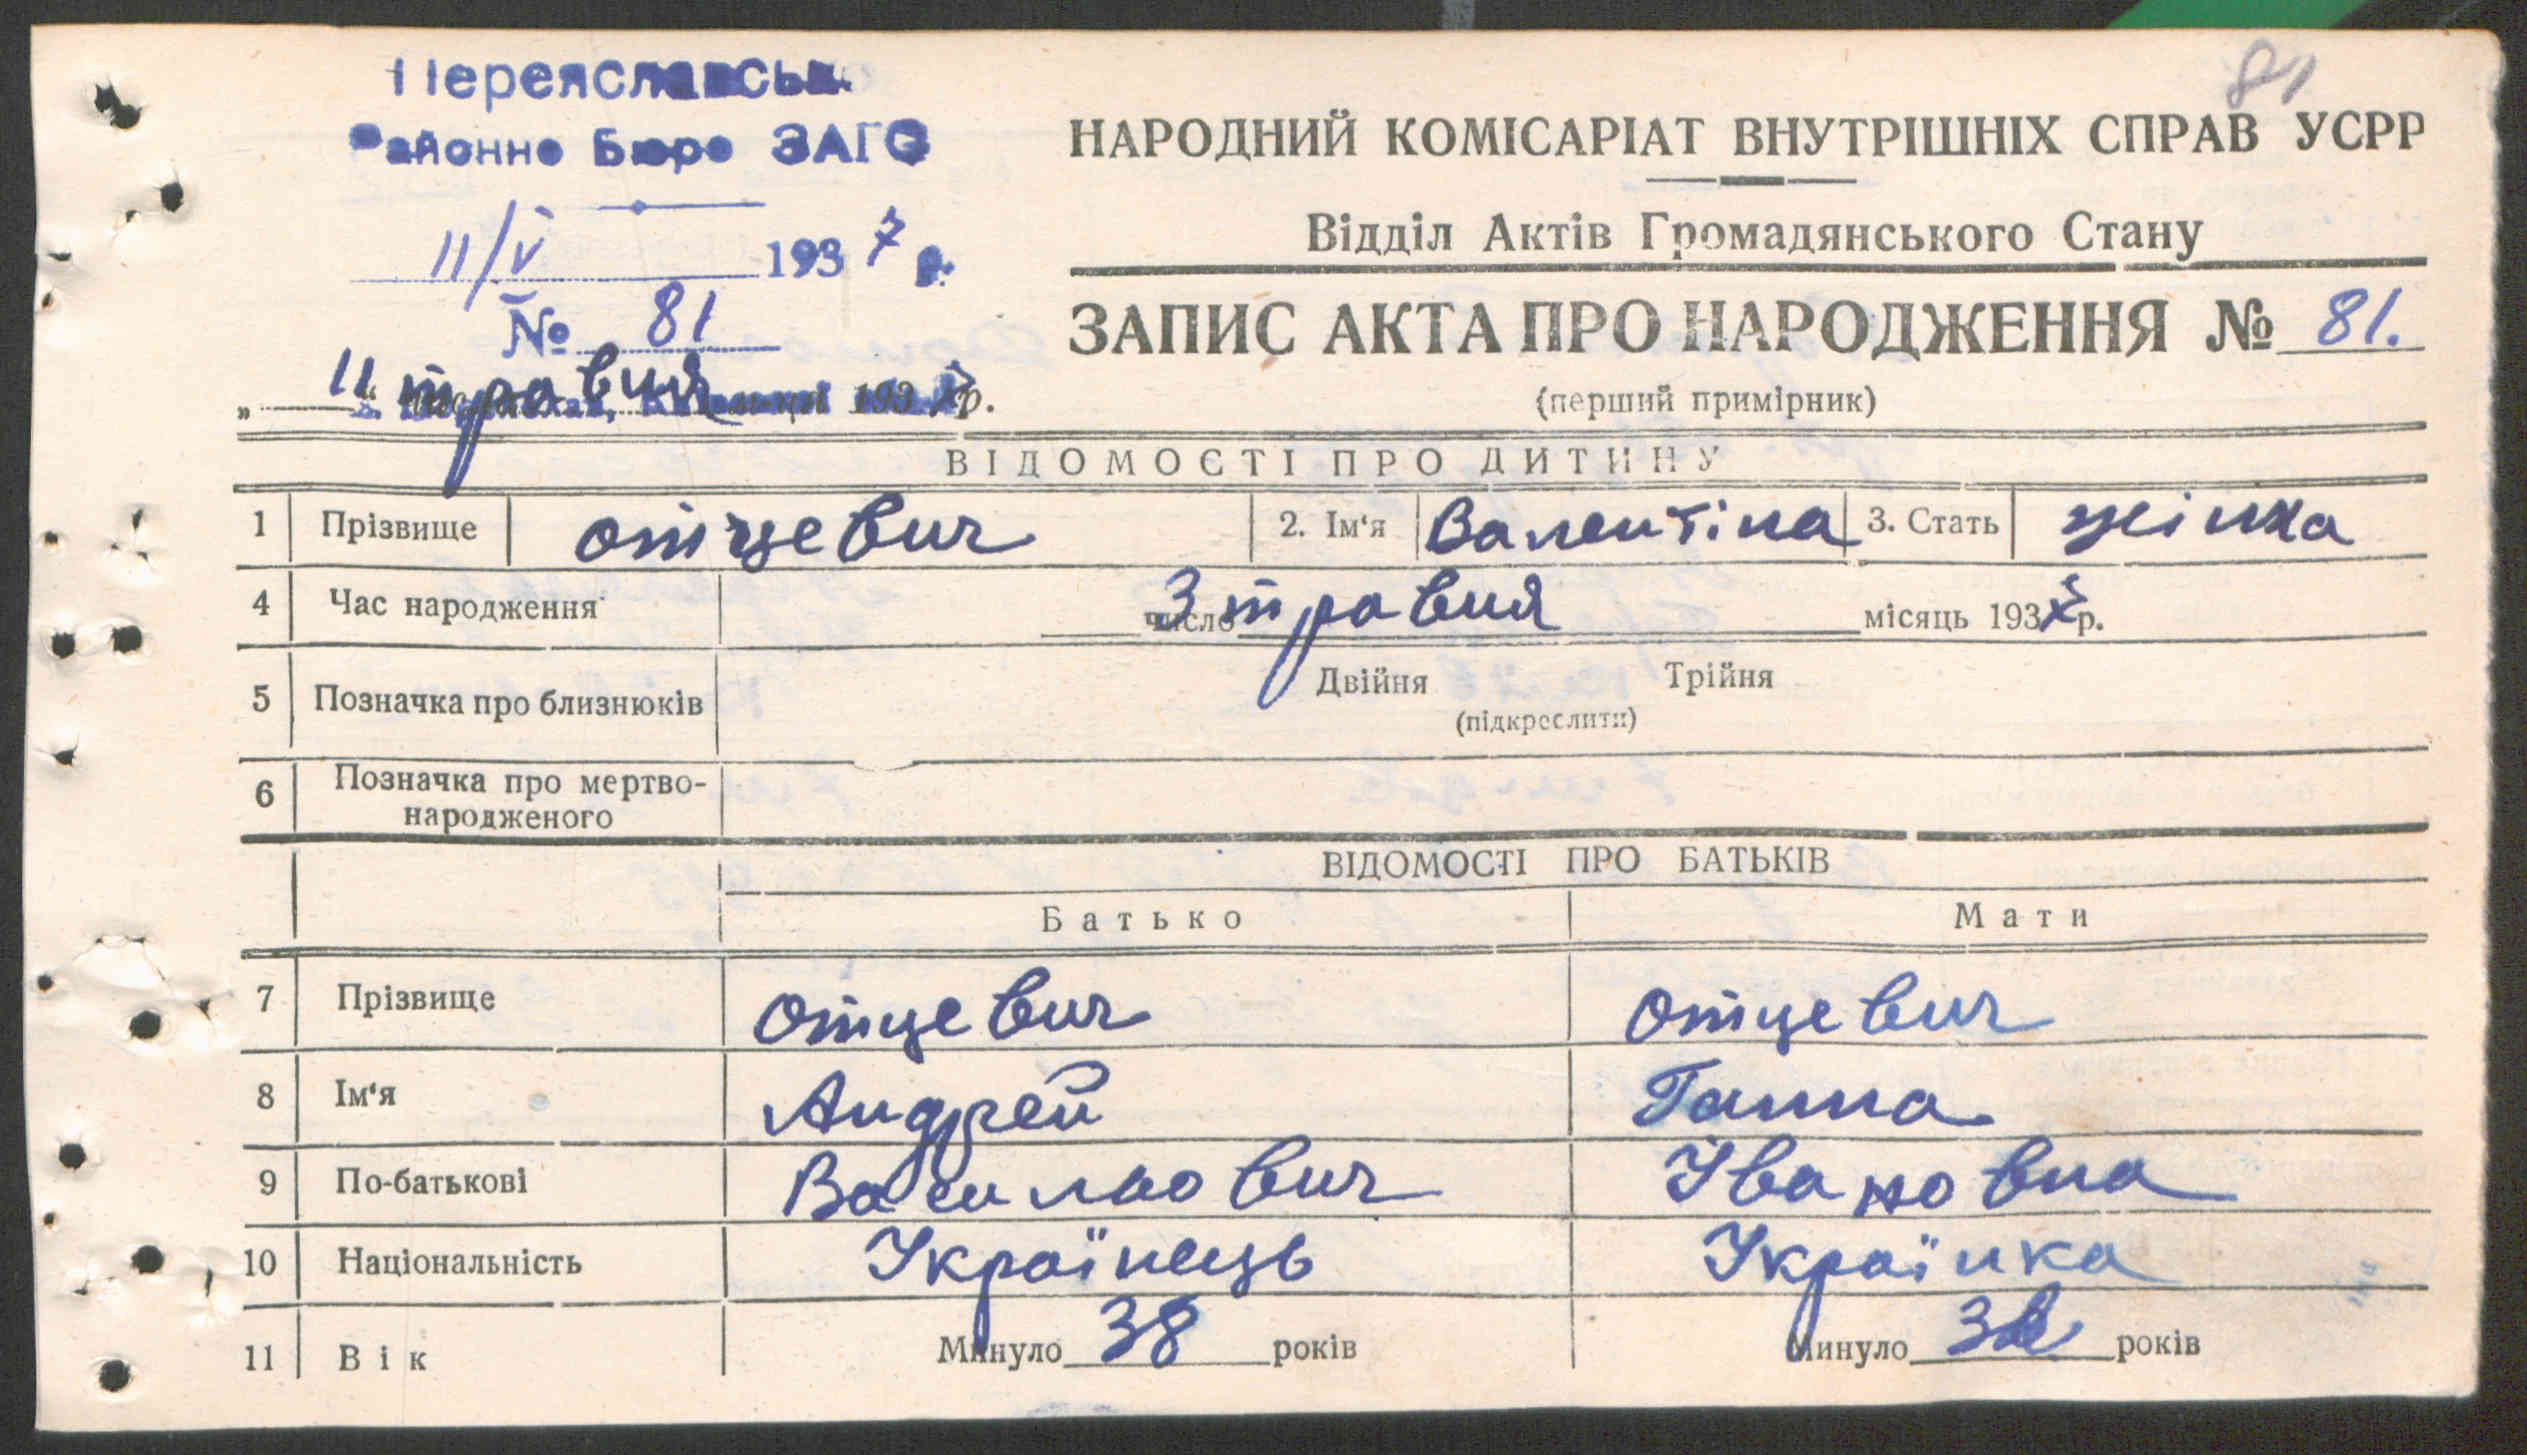 81
Переяславськ
Районне Бюро ЗАГС
НАРОДНИЙ КОМІСАРІАТ ВНУТРІШНІХ СПРАВ УСРР
Відділ Актів Громадянського Стану
11/V 1937 р.
№ 81
ЗАПИС АКТА ПРО НАРОДЖЕННЯ № 81.
„11“ травня 1937 р.
(перший примірник)
ВІДОМОСТІ ПРО ДИТИНУ
1 Прізвище Отцевич 2. Ім'я Валентіна 3. Стать жінка
4 Час народження 3 число травня місяць 1937 р.
5 Позначка про близнюків Двійня Трійня
(підкреслити)
6 Позначка про мертво-
народженого
ВІДОМОСТІ ПРО БАТЬКІВ
Батько Мати
7 Прізвище Отцевич Отцевич
8 Ім'я Андрей Ганна
9 По-батькові Василювич Івановна
10 Національність Українець Українка
11 Вік Минуло 38 років Минуло років